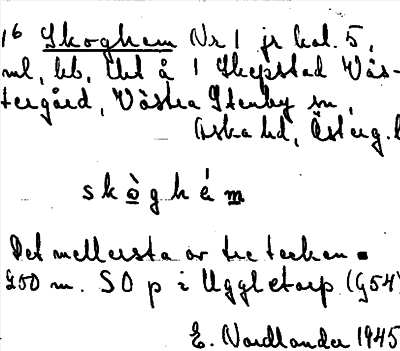 16 Skoghem Nr 1 jr kol. 5,
ml, bb, tht å 1 Skepstad Väs-
tergård, Västra Stenby sn,
Aska hd, Österg. l
skòghém
Det mellersta av tre tecken
250 m. SO p i Uggletorp (G54)
E. Nordlander 1945